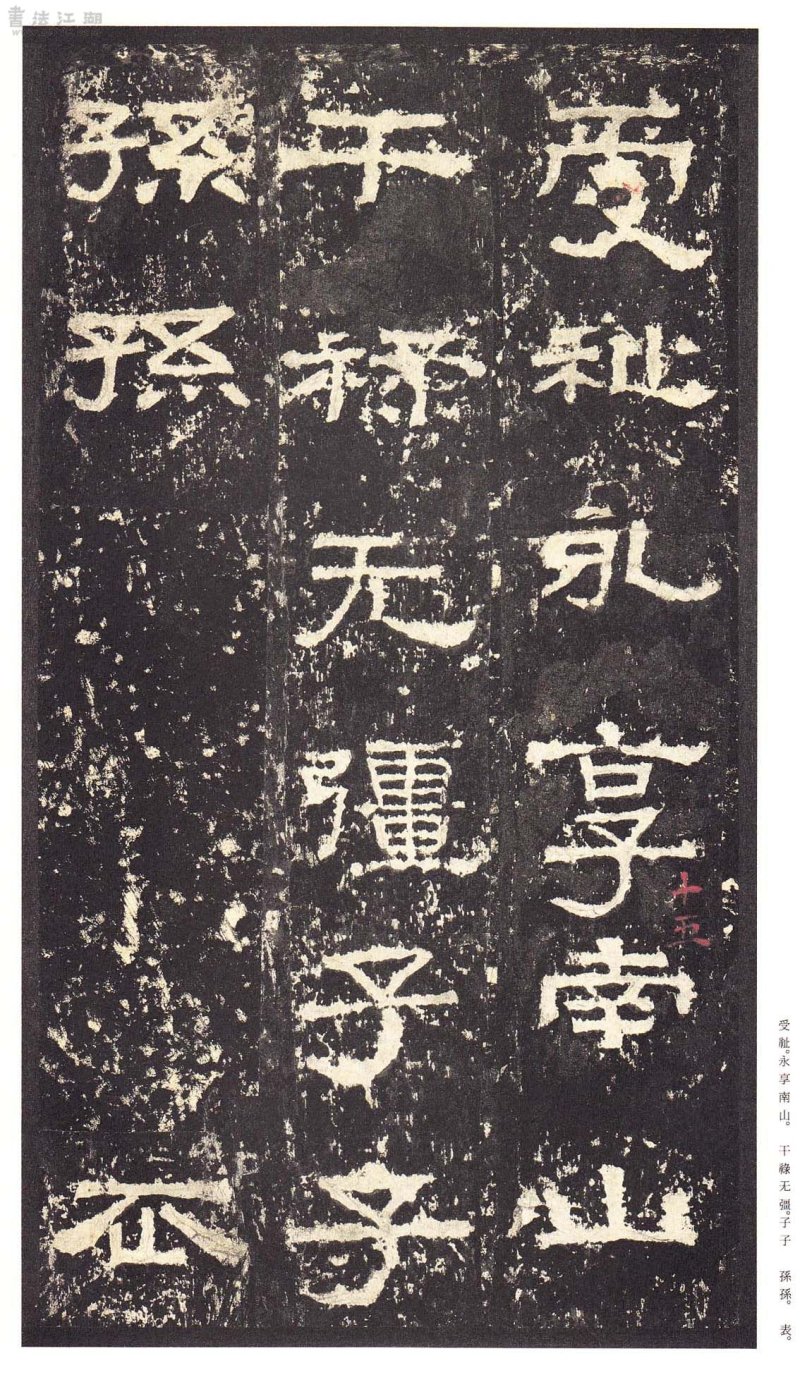 受祉永享南山
干祿无彊子子
孫孫
十五
受祉。永享南山。 干祿无彊。子子 孫孫。 表。
書法江湖